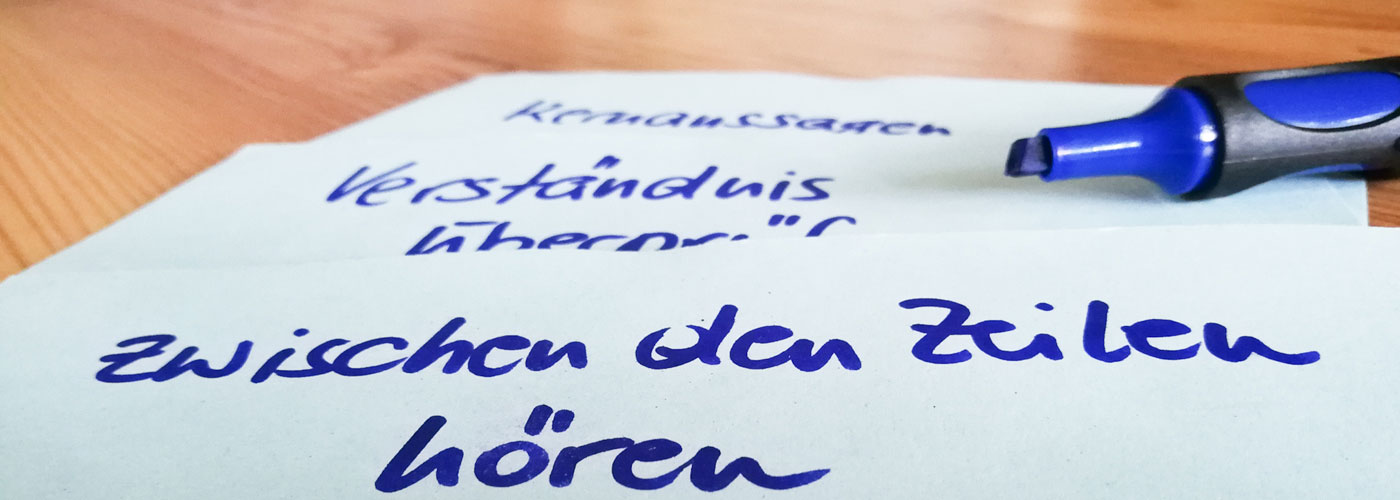 Kernaussagen
Verständnis
zwischen den Zeilen
hören